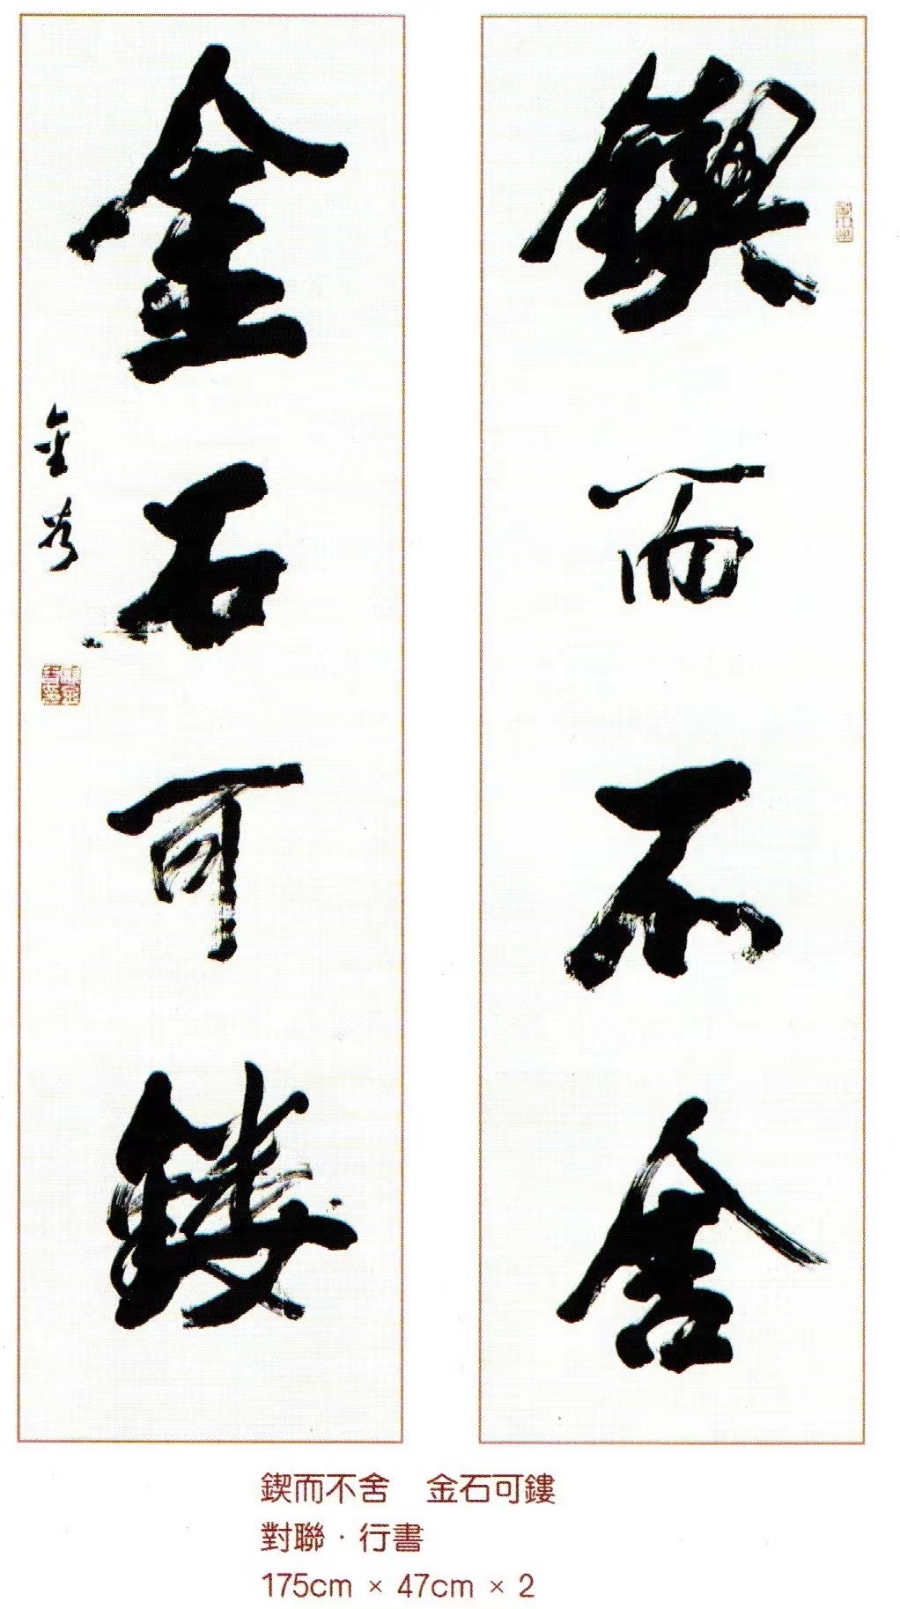 鍥而不舍
金石可鏤
鍥而不舍　金石可鏤
對聯·行書
175cm × 47cm × 2